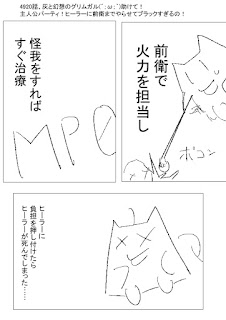 4920話、灰と幻想のグリムガル(´;ω;`)助けて！
主人公パーティ！ヒーラーに前衛までやらせてブラックすぎるの！
前衛で
火力を担当し
ボコン
怪我をすれば
すぐ治療
MP0
ヒーラーに
負担を押し付けたら
ヒーラーが
死んでしまった……